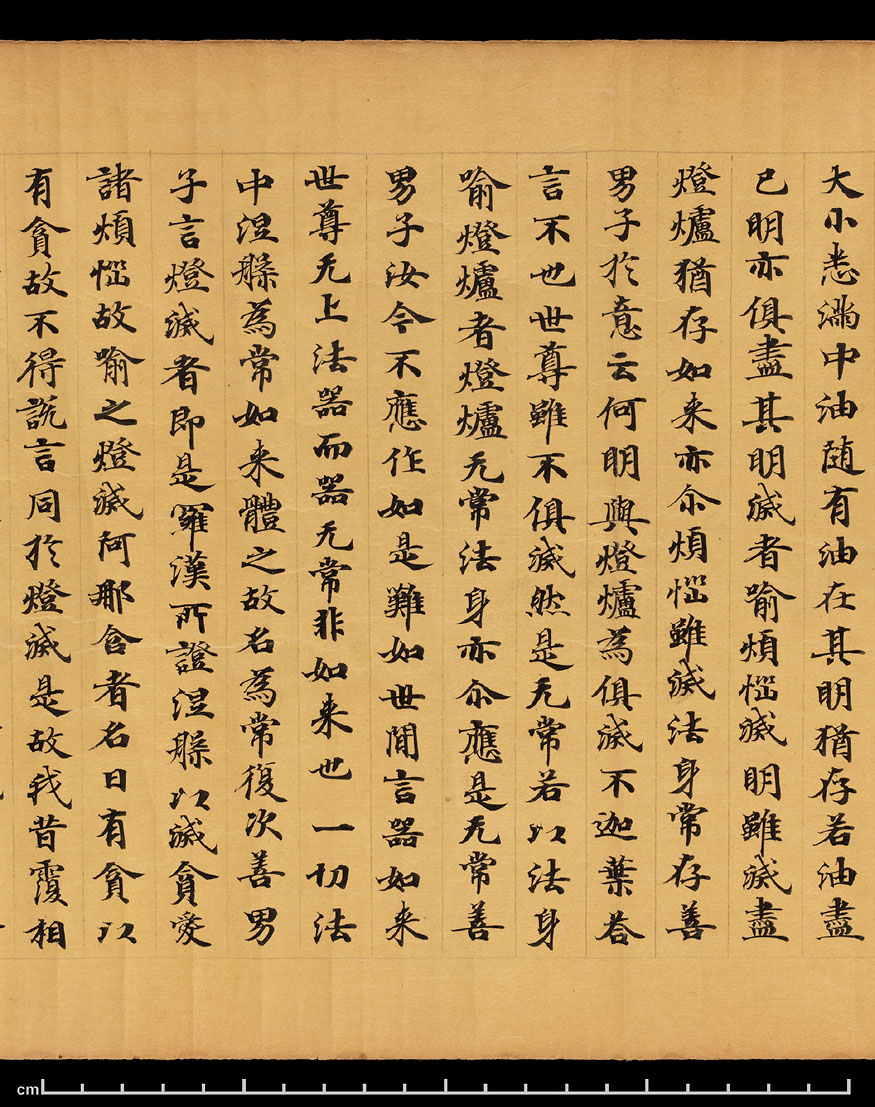 大小悉滿中油随有油在其明猶存若油盡
已明亦俱盡其明滅者喻煩惱滅明雖滅盡
燈爐猶存如来亦尒煩惱雖滅法身常存善
男子扵意云何明與燈爐為俱滅不迦葉荅
言不也世尊雖不俱滅然是无常若以法身
喻燈爐者燈爐无常法身亦尒應是无常善
男子汝今不應作如是難如世間言器如来
世尊无上法器而器无常非如来也一切法
中涅槃為常如来體之故名為常復次善男
子言燈滅者即是羅漢所證涅槃以滅貪愛
諸煩惱故喻之燈滅阿那含者名曰有貪以
有貪故不得說言同扵燈滅是故我昔覆相
cm